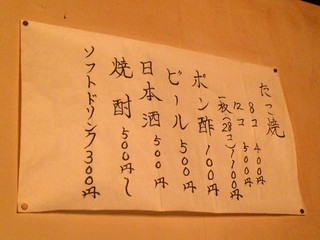 たこ焼
8コ 400円
12コ 500円
一枚(28コ) 1100円
ポン酢 100円
ビール 500円
日本酒 500円
焼酎 500円〜
ソフトドリンク 300円